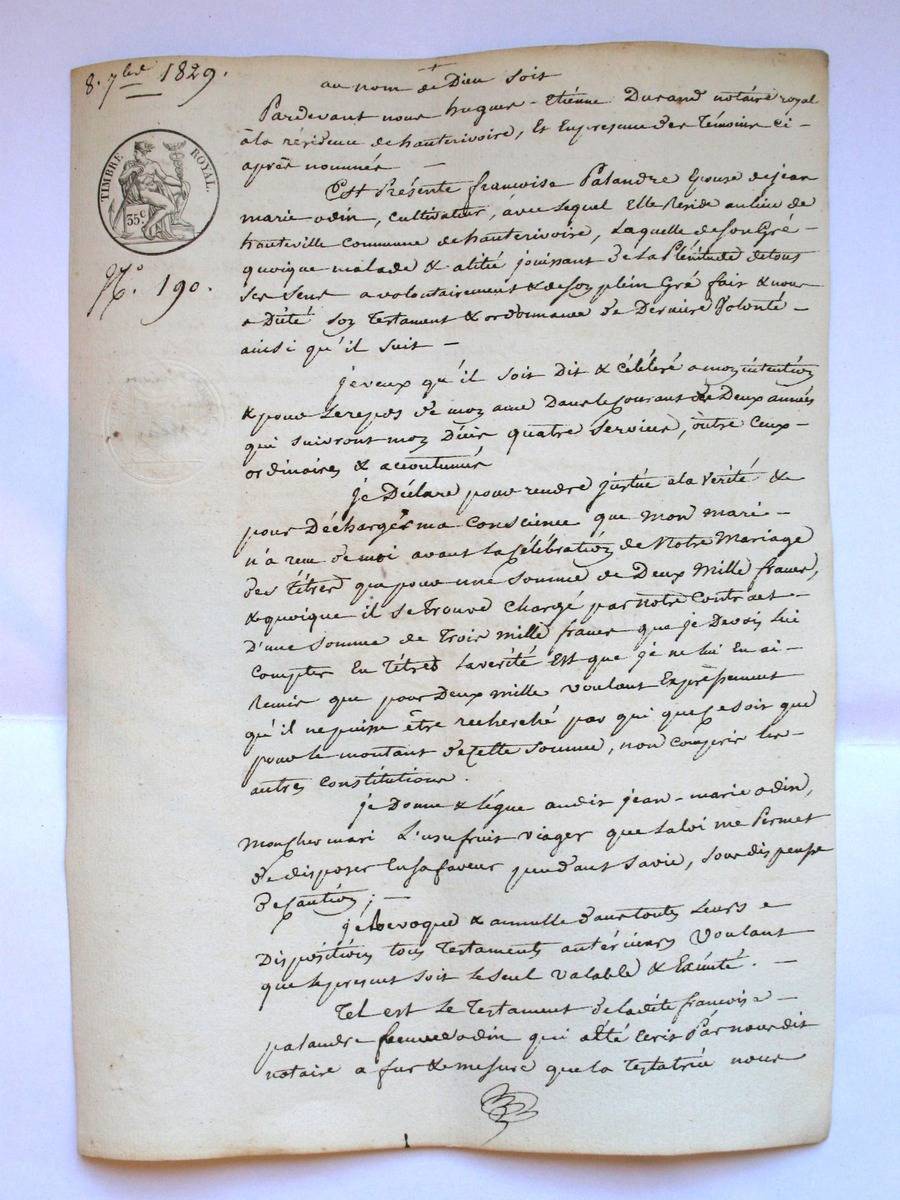 8. 7bre 1829.
au nom de Dieu soit
TIMBRE ROYAL.
35c
N.º 190.
Pardevant nous hugues-Etiénne Durand notaire royal
à la résidence de hauterivoire, Et En presence des Témoins ci-
aprés nommés —
Est Présente francoise Palandre Epouse de jean
marie odin, cultivateur, avec lequel Elle Réside au lieu de
hauteville commune de hauterivoire, Laquelle de son Gré -
quoique malade & alité jouissant de La Plénitude de tous
ses sens a volontairement & de son plein Gré fait & nous
a Dicté son Testament & ordonnance de Derniere Volonté -
ainsi qu'il suit —
je veux qu'il soit Dit & célébré a mon intention
& pour Le repos de mon ame Dans le courant des Deux années
qui suivront mon Décès quatre services, outre Ceux -
ordinaires & accoutumés
je Déclare pour rendre justice a la Verité &
pour Décharger ma Conscience que mon mari -
n'a recu de moi avant La Célébration de Notre Mariage
des Tétres que pour une Somme de Deux Mille francs,
& quoique il se Trouve Chargé par notre Contract -
D'une Somme de Trois mille francs que je Devois Lui
Compter En Tétres La verité Est que je ne lui En ai -
Remis que pour Deux mille voulant Expressement
qu'il ne puisse être recherché par qui que ce soit que
pour le montant de Cette Somme, non Compris les -
autres constitutions.
je Donne & Légue audit jean-marie odin,
Mon Cher mari L'usufruit viager que La loi me Permet
de disposer En sa faveur pendant sa vie, sous dispense
de caution; —
je Revoque & annulle dans touts Leurs
Dispositions tous Testaments antérieurs Voulant
que le present soit le seul valable & Exécuté. —
Tel est Le Testament de la dite francoise -
palandre femme odin qui a été Ecrit Par nous dit
notaire a fur & mesure que la Testatrice nous